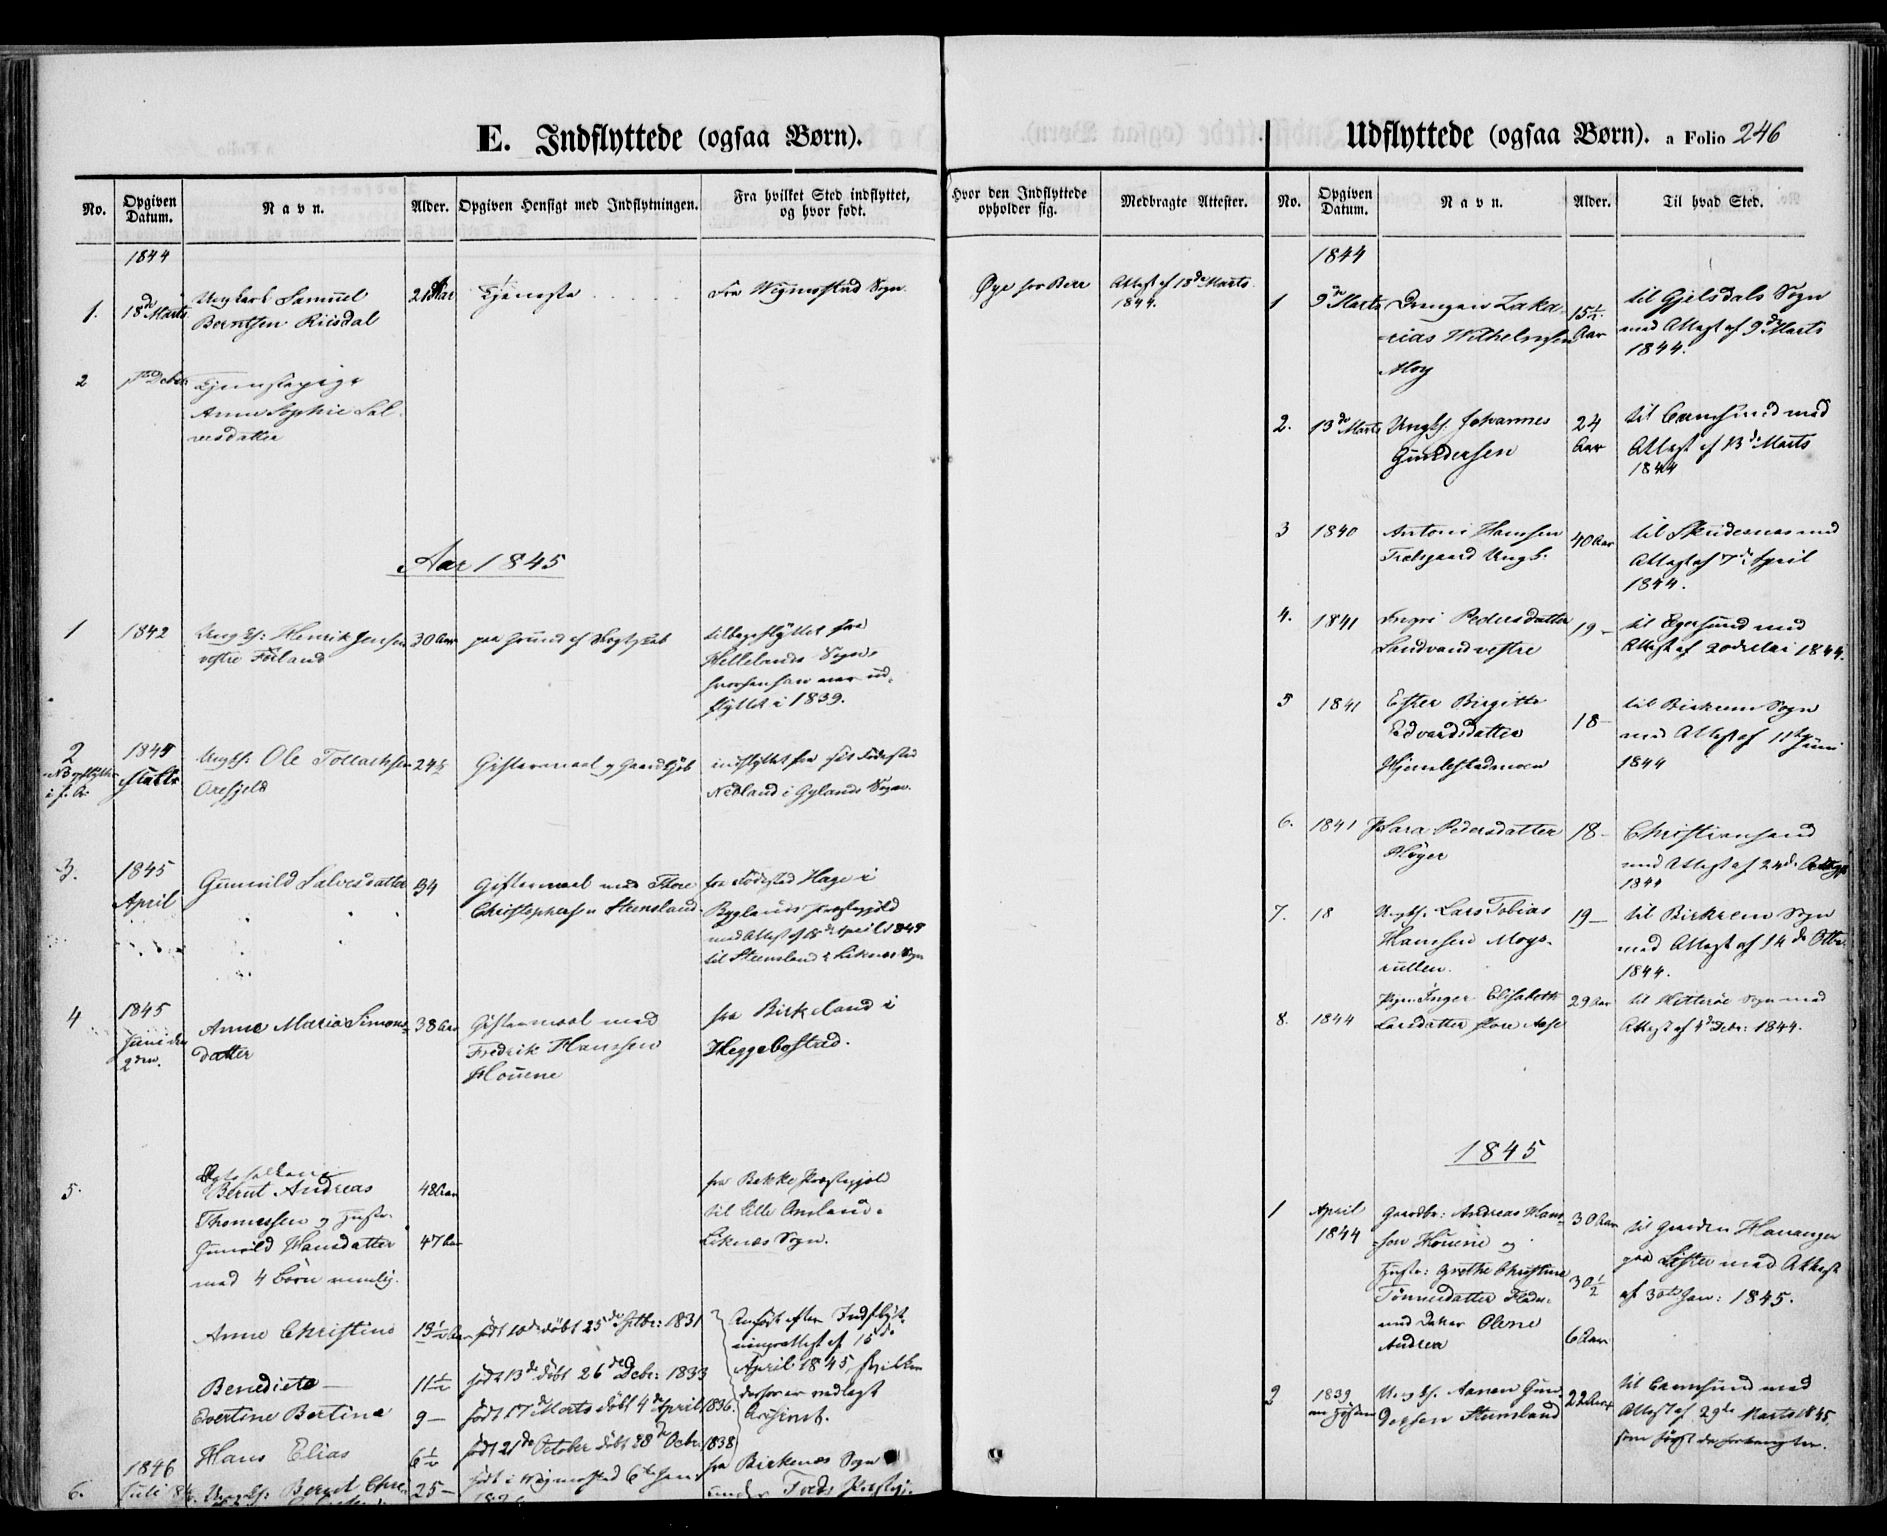 E. Indflyttede (ogsaa Børn).
No.
Opgiven Datum.
Navn.
Alder.
Opgiven Hensigt med Indflytningen.
Fra hvilket Sted indflyttet, og hvor født.
Hvor den Indflyttede opholder sig.
Medbragte Attester.
1844
1. 18de Marts
Ungkarl Samuel
Berntsen Riisdal
21 Aar
Tjeneste
fra Wigmostad Sogn
Øye for Bere
Attest af 18de Marts
1844.
2
Tjenestepige
Anne Sophie Sal
vesdatter
Aar 1845
1 1842
Ungk: Henrik Jensen
vestre Førland
30 Aar
paa Grund af Slægtskab
tilbageflyttet fra
Hellelands Sogn,
hvorhen han var ud-
flyttet i 1839.
2 1845
Ungk: Ole Tollachsen
24
Giftermaal og Gaardkjøb
indflyttet fra sit Fødested
Nedland i Gylands Sogn.
3. 1845
April
Gunvild Salvesdatter
34
Giftermaal med Tore
Christophersen Steensland
fra Fødested Hage i
Byglands Præstegjæld
med Attest af 18de April 1845
til Steensland i Liknes Sogn
4 1845
Juni den
2den.
Anne Maria Simons-
datter
38 Aar
Giftermaal med
Fredrik Hanssen
Houene
fra Birkeland i
Heggebostad.
5.
Bernt Andreas
Thomassen og Hustr.
Gunvild Hansdatter
med 4 børn nemlig.
48 Aar
47 Aar
fra Bakke Præstegjæld
til Lille Omland i
Liknes Sogn.
Anne Christine
13½ Aar
født 10de døbt 25de Septbr: 1831
Benedicte —
11½
født 13de døbt 26de Decbr: 1833
Evertine Bertine
9 —
født 17de Marts døbt 4de April 1836.
Hans Elias
6½
født 21de October døbt 28de Octbr. 1838
Anført efter Indflyt-
ningsattest af 15de
April 1845 hvilken
derfor er nedlagt
Archivet.
6. 1846
Juli
Ungk: Bernt Chri
25 —
født i Wigmostad 6te Jan
fra Birkenes Sogn
under Præstegj.
Udflyttede (ogsaa Børn). a Folio 246
No.
Opgiven Datum.
Navn.
Alder.
Til hvad Sted.
1844
1 9de Marts
Drengen Zaka-
rias Wilhelmsen
Moy
15½ Aar
til Gjelsdals Sogn
med Attest af 9de Marts
1844.
2. 13de Marts
Ungk. Johannes
Gundersen
24 Aar
til Carmsund med
Attest af 13de Marts
1844
3 1840
Antoni Hanssen
Trælsgaard Ungk.
40 Aar
til Skudesnes med
Attest af 7de April
1844.
4. 1841
Ingri Pedersdatter
Landvand vestre
19 —
til Egersund med
Attest af 20de Mai 1844.
5 1841
Ester Birgitte
Edvardsdatter
Hjemlestadmoen
18 —
til Birkrem Sogn
med Attest af 11te Juni
1844
6. 1841
Sara Pedersdatter
Høyer
18 —
Christiansand
med Attest af 24de
1844
7. 18
Ungk. Lars Tobias
Hanssen Moys-
rullen.
19 —
til Birkrem Sogn
med Attest af 14de Octbr.
1844.
8. 1844
Pigen Inger Elisabeth
Larsdatter store Aase
29 Aar
til Hitterøe Sogn med
Attest af 4de Decbr: 1844.
1845
1 April
1844
Gaardbr: Andreas Hans-
sen Houene og
Hustr: Grethe Christine
Tønnesdatter
med Datter Olene
Andrea
30 Aar
30½
6 Aar
til Gaarden Hananger
paa Lister med Attest
af 30te Jan: 1845.
2 1839
Ungk. Aanen Gun-
dersen Stensland
22 Aar
til Carmsund med
Attest af 29de Marts 1845